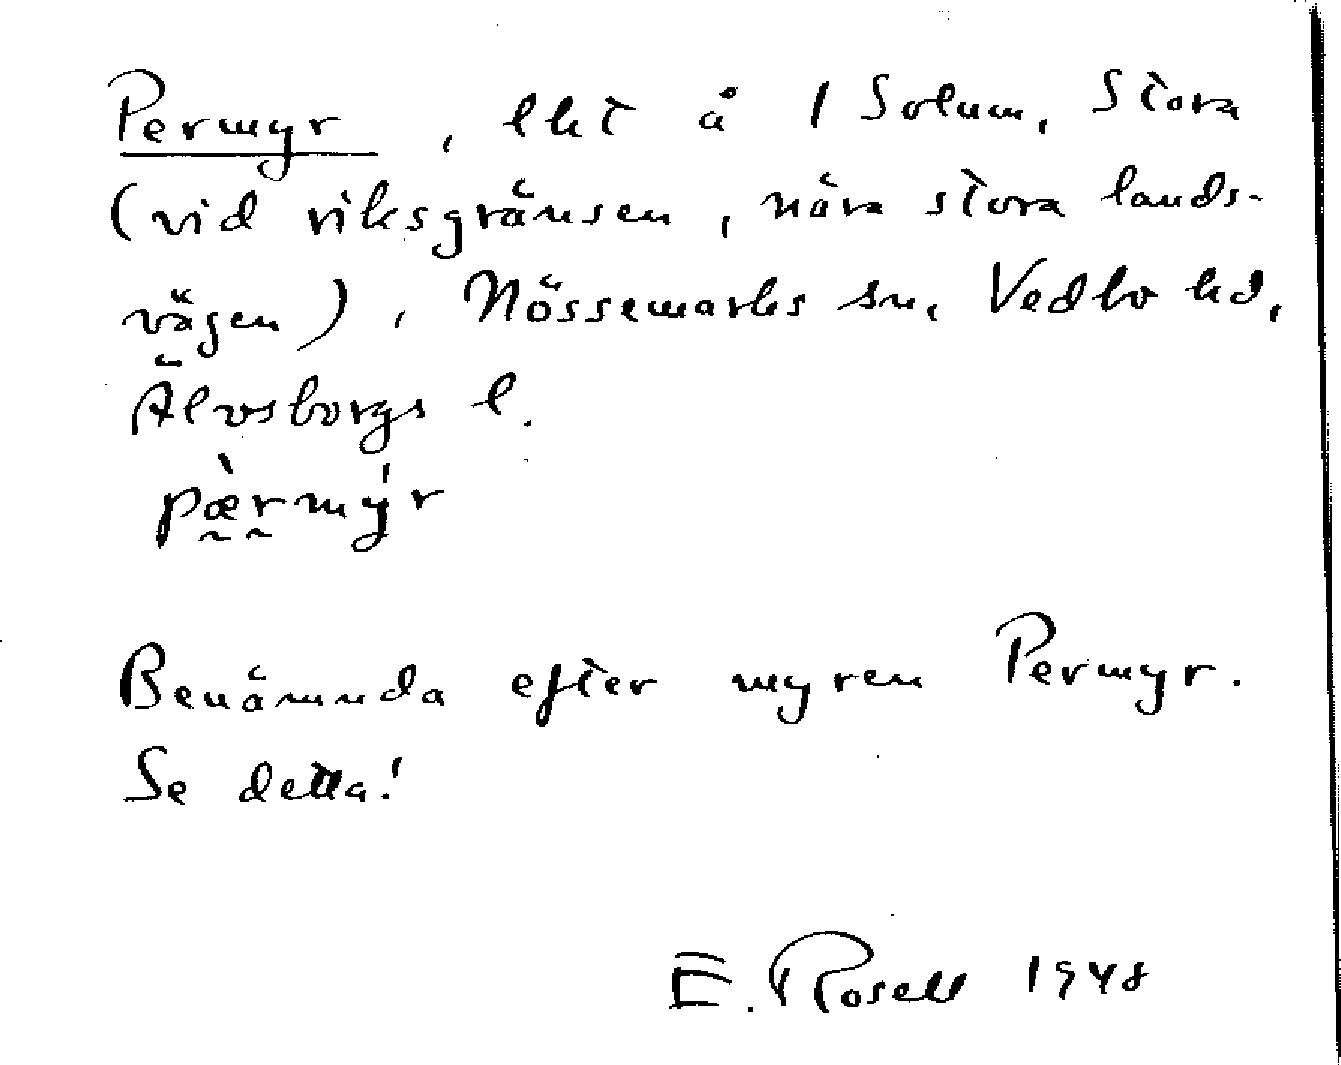 Permyr, lht å 1 Solum, Stora
(vid riksgränsen, nära stora lands-
vägen), Nössemarks sn, Vedbo hd,
Älvsborgs l.
pæ̀rmýr
Benämnda efter myren Permyr.
Se detta!
E. Rosell 1948